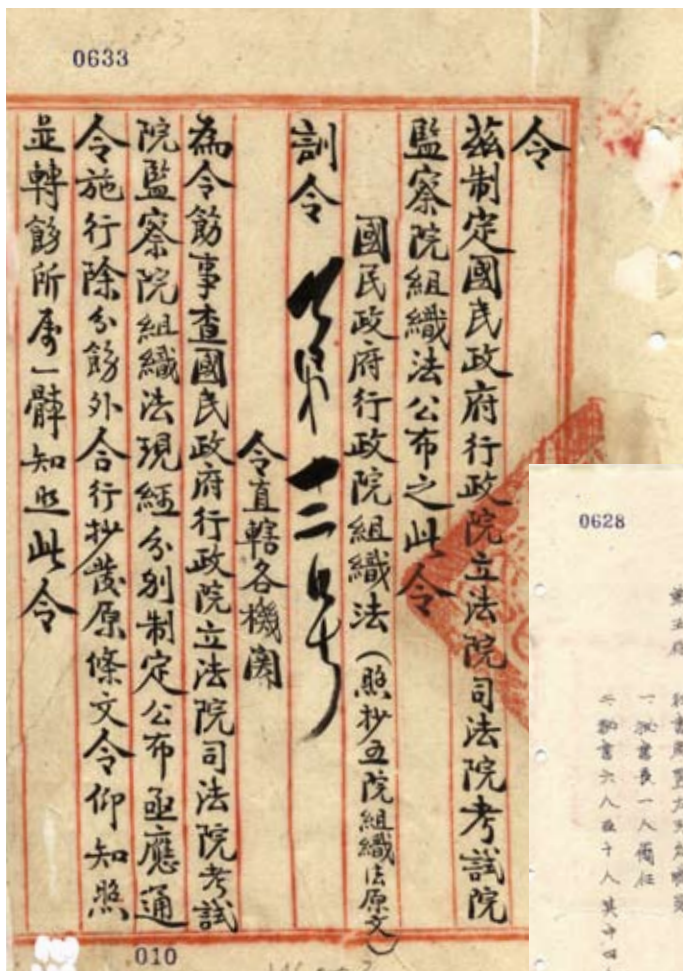 0633
令
茲制定國民政府行政院立法院司法院考試院
監察院組織法公布之此令
國民政府行政院組織法(照抄五院組織法原文)
訓令
令直轄各機関
為令飭事查國民政府行政院立法院司法院考試
院監察院組織法現經分別制定公布亟應通
令施行除分飭外合行抄發原條文令仰知照
並轉飭所属一體知照此令
010
0628
一秘書長一人簡任